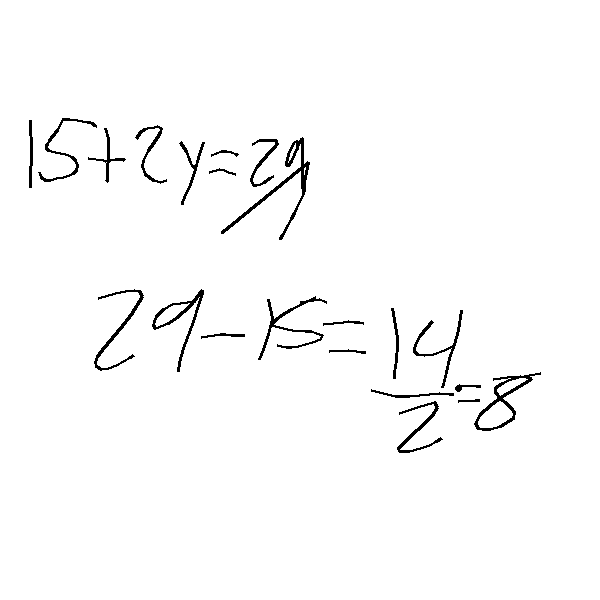 15+2y=29
29-15=14/2=8